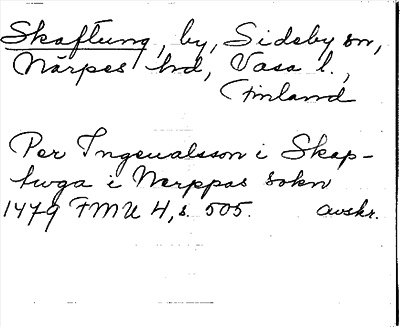 Skaftung, by, Sideby sn,
Närpes hd, Vasa l.,
Finland
Per Ingeualsson i Skap-
twga i Nerppas sokn
1479 FMU 4, s. 505. avskr.